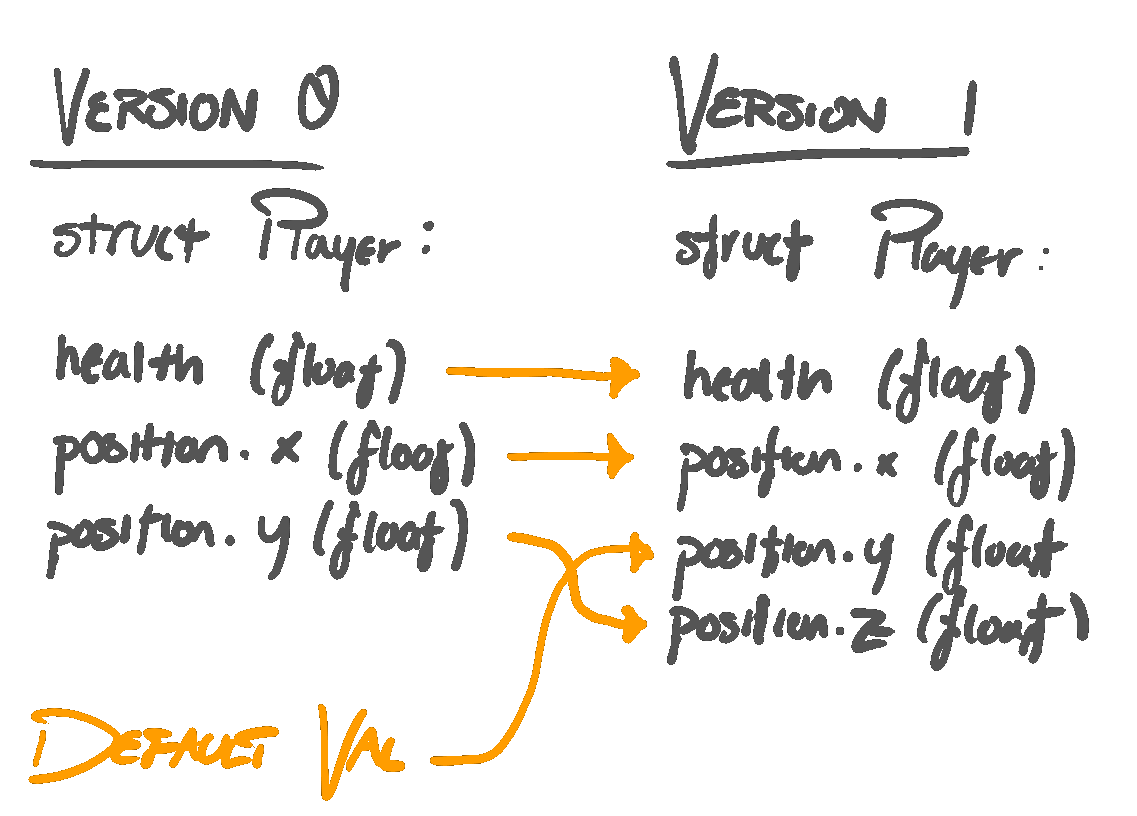 VERSION 0
struct Player:
health (float)
position.x (float)
position.y (float)
DEFAULT VAL
VERSION 1
struct Player:
health (float)
position.x (float)
position.y (float
position.z (float)